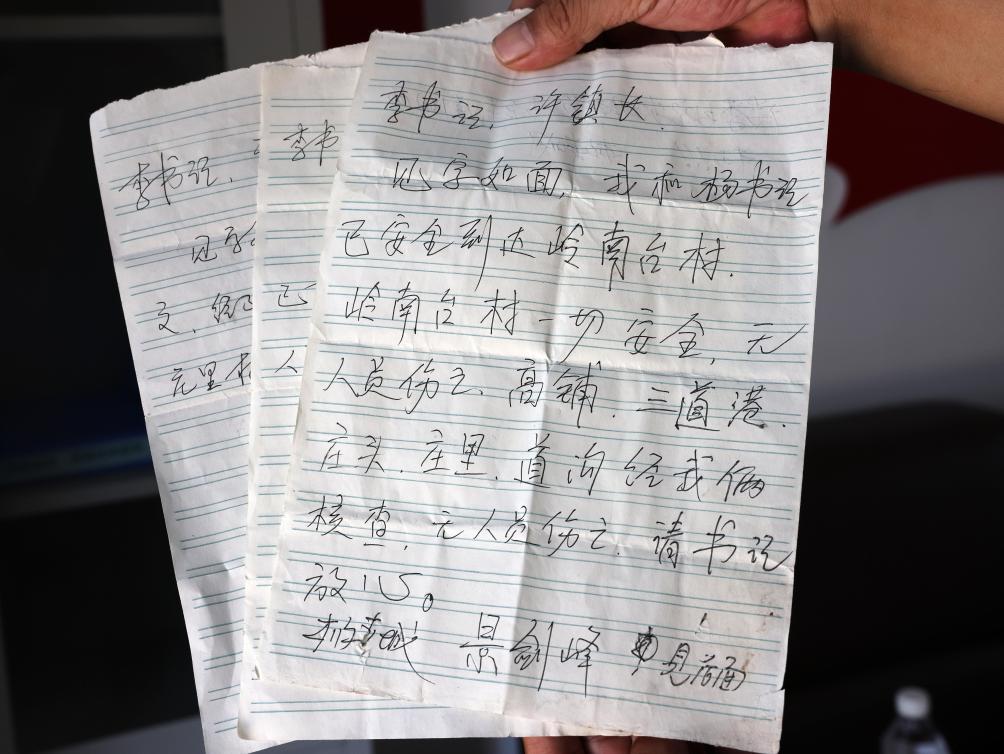 李书记，许镇长.
见字如面，我和杨书记
已安全到达岭南台村.
岭南台村一切安全，无
人员伤亡、高铺、三道港、
庄头、庄里、道沟经我俩
核查，无人员伤亡，请书记
放心。
景剑峰
李书
已
人
李书记，
见字
文、
庄里村